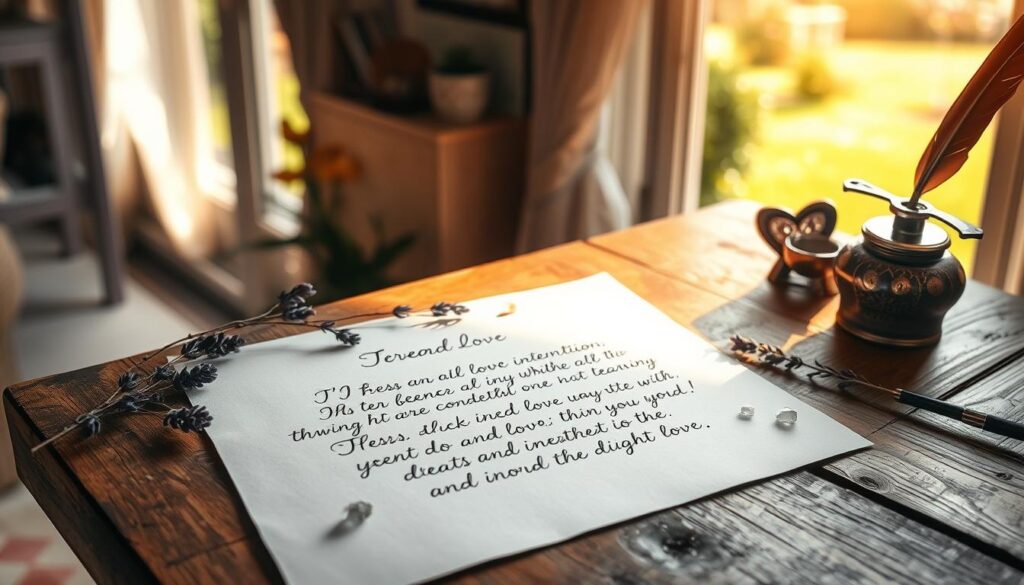 Tereend love
"I'J hess an all love intenntion,
IAs ter beener al iny whithe all the
thwing ht are condetful one hat leasiing
Hess. dlick ined love uay wutte with.
yeent do and love.: thin you yord!
deeats and inesthet to the.
and inord the diught love.